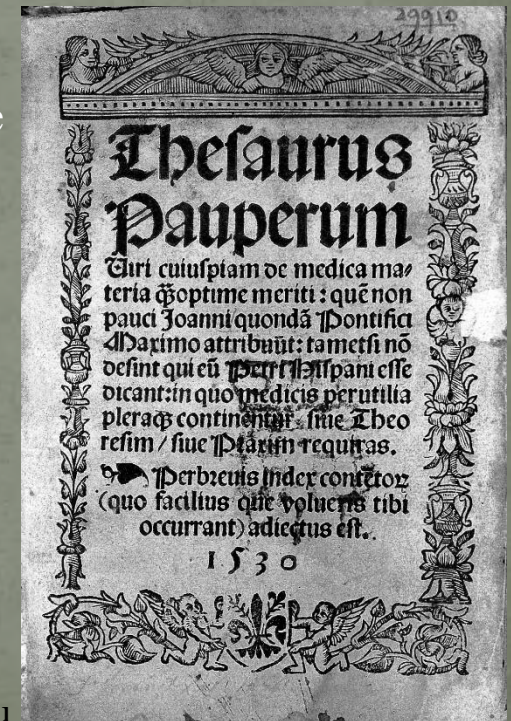 29910
e
Theſaurus
Pauperum
Uiri cuiuſpiam de medica ma⸗
teria q̃ꝫoptime meriti : quē non
pauci Joanni quondã Pontifici
Maximo attribuūt: tametſi nō
deſint qui eū Petri Hiſpani eſſe
dicant:in quo medicis perutilia
pleraqꝫ continentur, ſiue Theo
reſim / ſiue Praxim requiras.
Perbreuis index contētoꝝ
(quo facilius que volueris tibi
occurrant) adiectus eſt.
1530
u